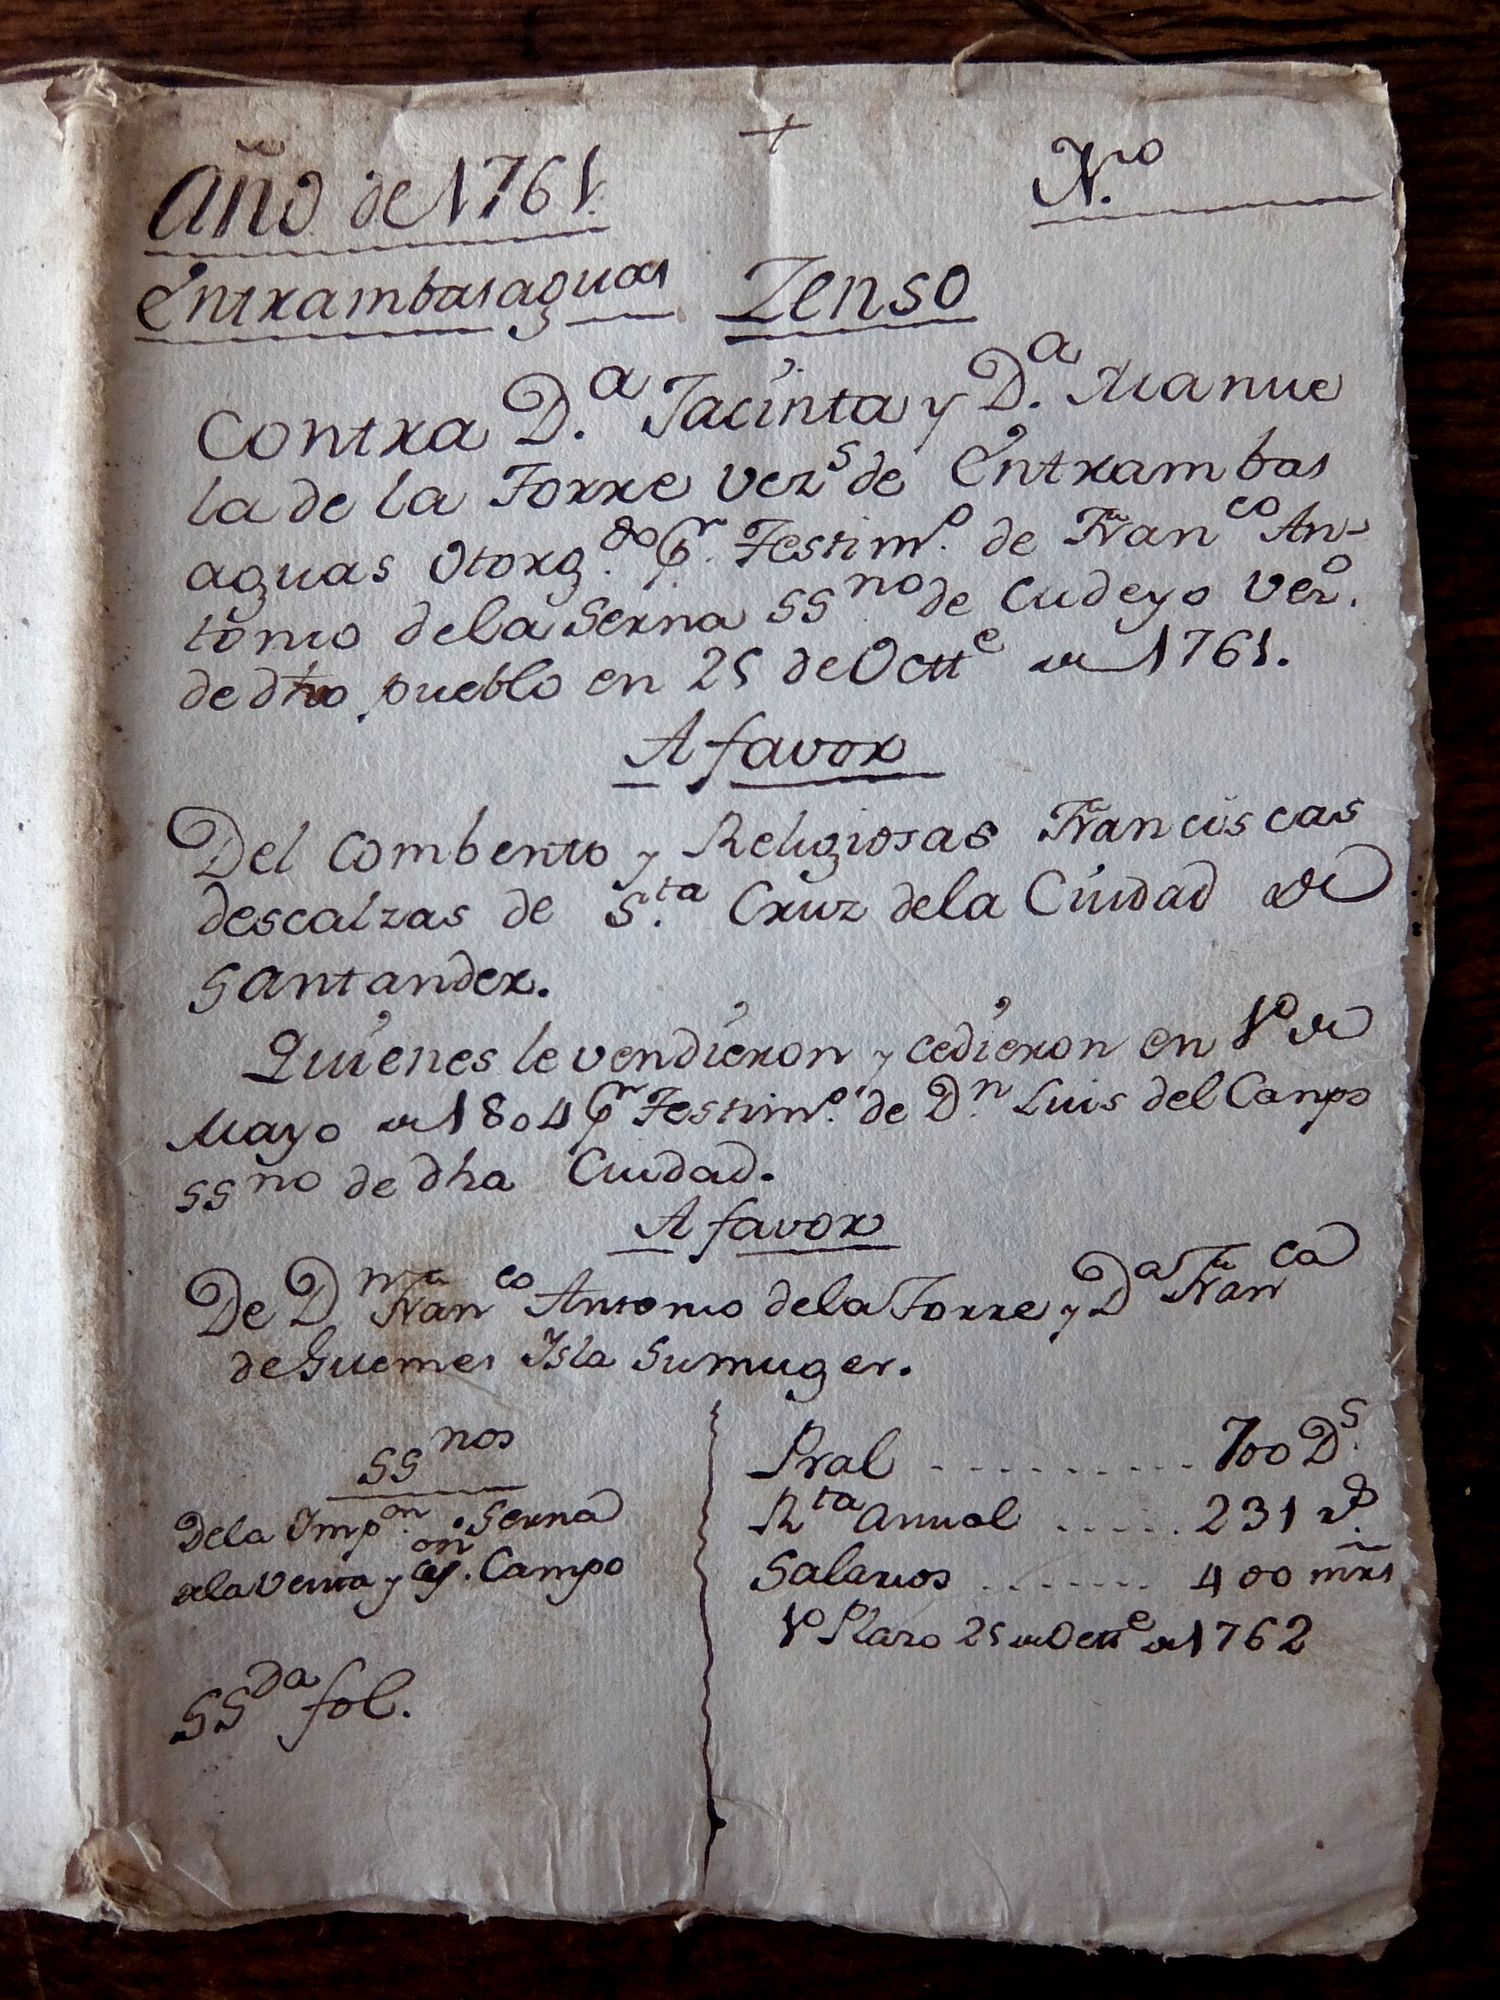 +
Año de 1761. N.ro
Entrambasaguas Zenso
Contra D.a Jacinta y D.a Manue
la de la Torre vezs de Entrambas
aguas otorg.do Pr. Testim.o de Franco An-
tonio dela Serna SSno de Cudeyo vezo.
de dho pueblo en 25 de Octte de 1761.
A favor
Del Combento y Religiosas Franciscas
descalzas de S.ta Cruz dela Ciudad de
Santander.
Quienes le vendieron y cedieron en 1o de
Mayo de 1804 Pr Testim.o de Dn Luis del Campo
SSno de dha Ciudad.
A favor
De Dn Franco Antonio dela Torre y Da Franca
de Guemes Isla Sumuger.
SSnos
Dela Impon. Serna
dela Venta y on. Campo
SSda fol.
Pral .......... 700 Ds.
Rta anual ..... 231 rs.
Salarios ....... 400 mrs
1o Plazo 25 de Octte de 1762